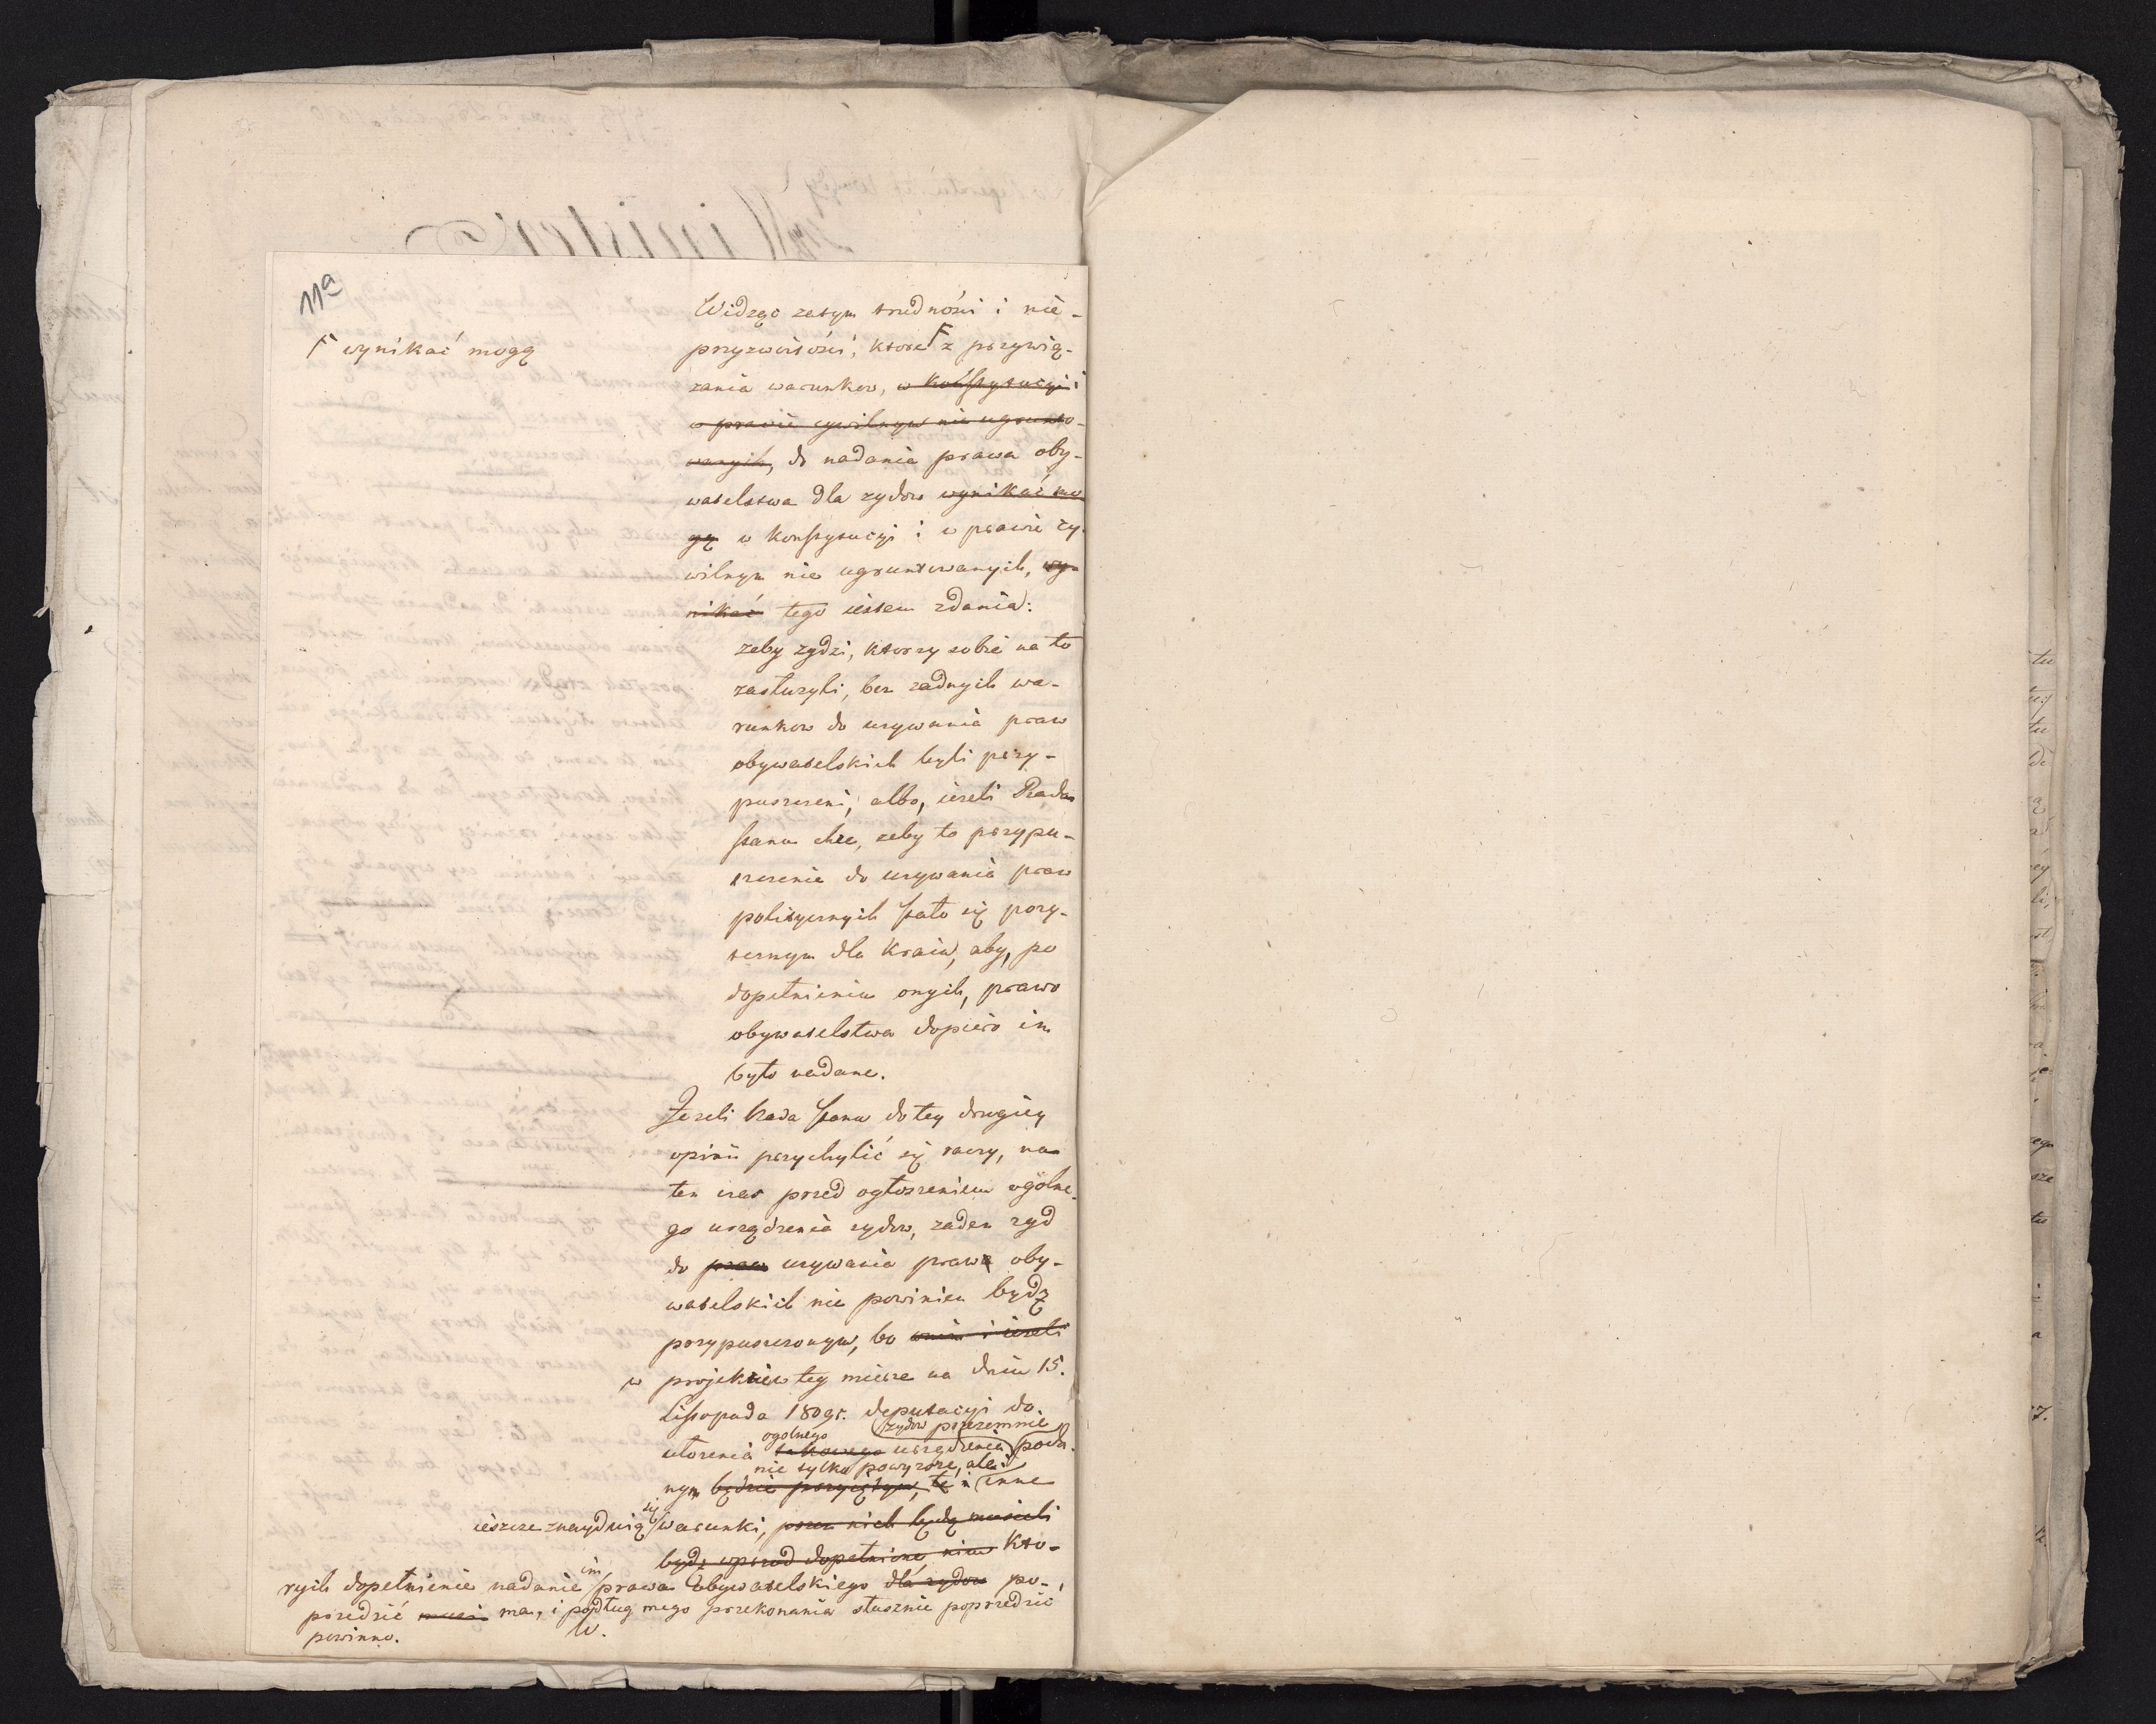 11a
Widząc zatym trudności i nie-
przyzwoitości, ktore F z przywią-
F wynikać mogą
zania warunkow, w konstytucyi i
w prawie cywilnym nie ugrunto-
wanych, do nadania prawa oby-
watelstwa dla zydow wynikać mo
gą w konstytucyi i w prawie cy-
wilnym nie ugruntowanych, wy-
nikać tego iestem zdania:
zeby zydzi, ktorzy sobie na to
zasłuzyli, bez zadnych wa-
runkow do uzywania praw
obywatelskich byli przy-
puszczeni, albo, iezeli Rada
stanu chce, zeby to przypu-
szczenie do uzywania praw
politycznych stało się pozy-
tecznym dla Kraiu, aby, po
dopełnieniu onych, prawo
obywatelstwa dopiero im
było nadane.
Jezeli Rada stanu do tey drugiey
opinii przychylić się raczy, na
ten czas przed ogłoszeniem ogólne-
go urządzenia zydow, zaden zyd
do praw uzywania prawa oby-
watelskich nie powinien bydz
przypuszczonym, bo i iezeli
w projekcie w tey mierze na dniu 15.
Listopada 1809 r. deputacyi do
zydow przezemnie
ogolnego
ułozenia takowego urządzenia poda-
nie tylko powyzsze, ale i
nym będzie przyiętym, te i inne
ieszcze znayduią się warunki, przez nich będą musieli
bydz wprzod dopełnione kto-
rych dopełnienie nadanie im prawa Obywatelskiego dla zydow po-
przedzić musi ma, i podług mego przekonania słusznie poprzedzić
powinno. W.